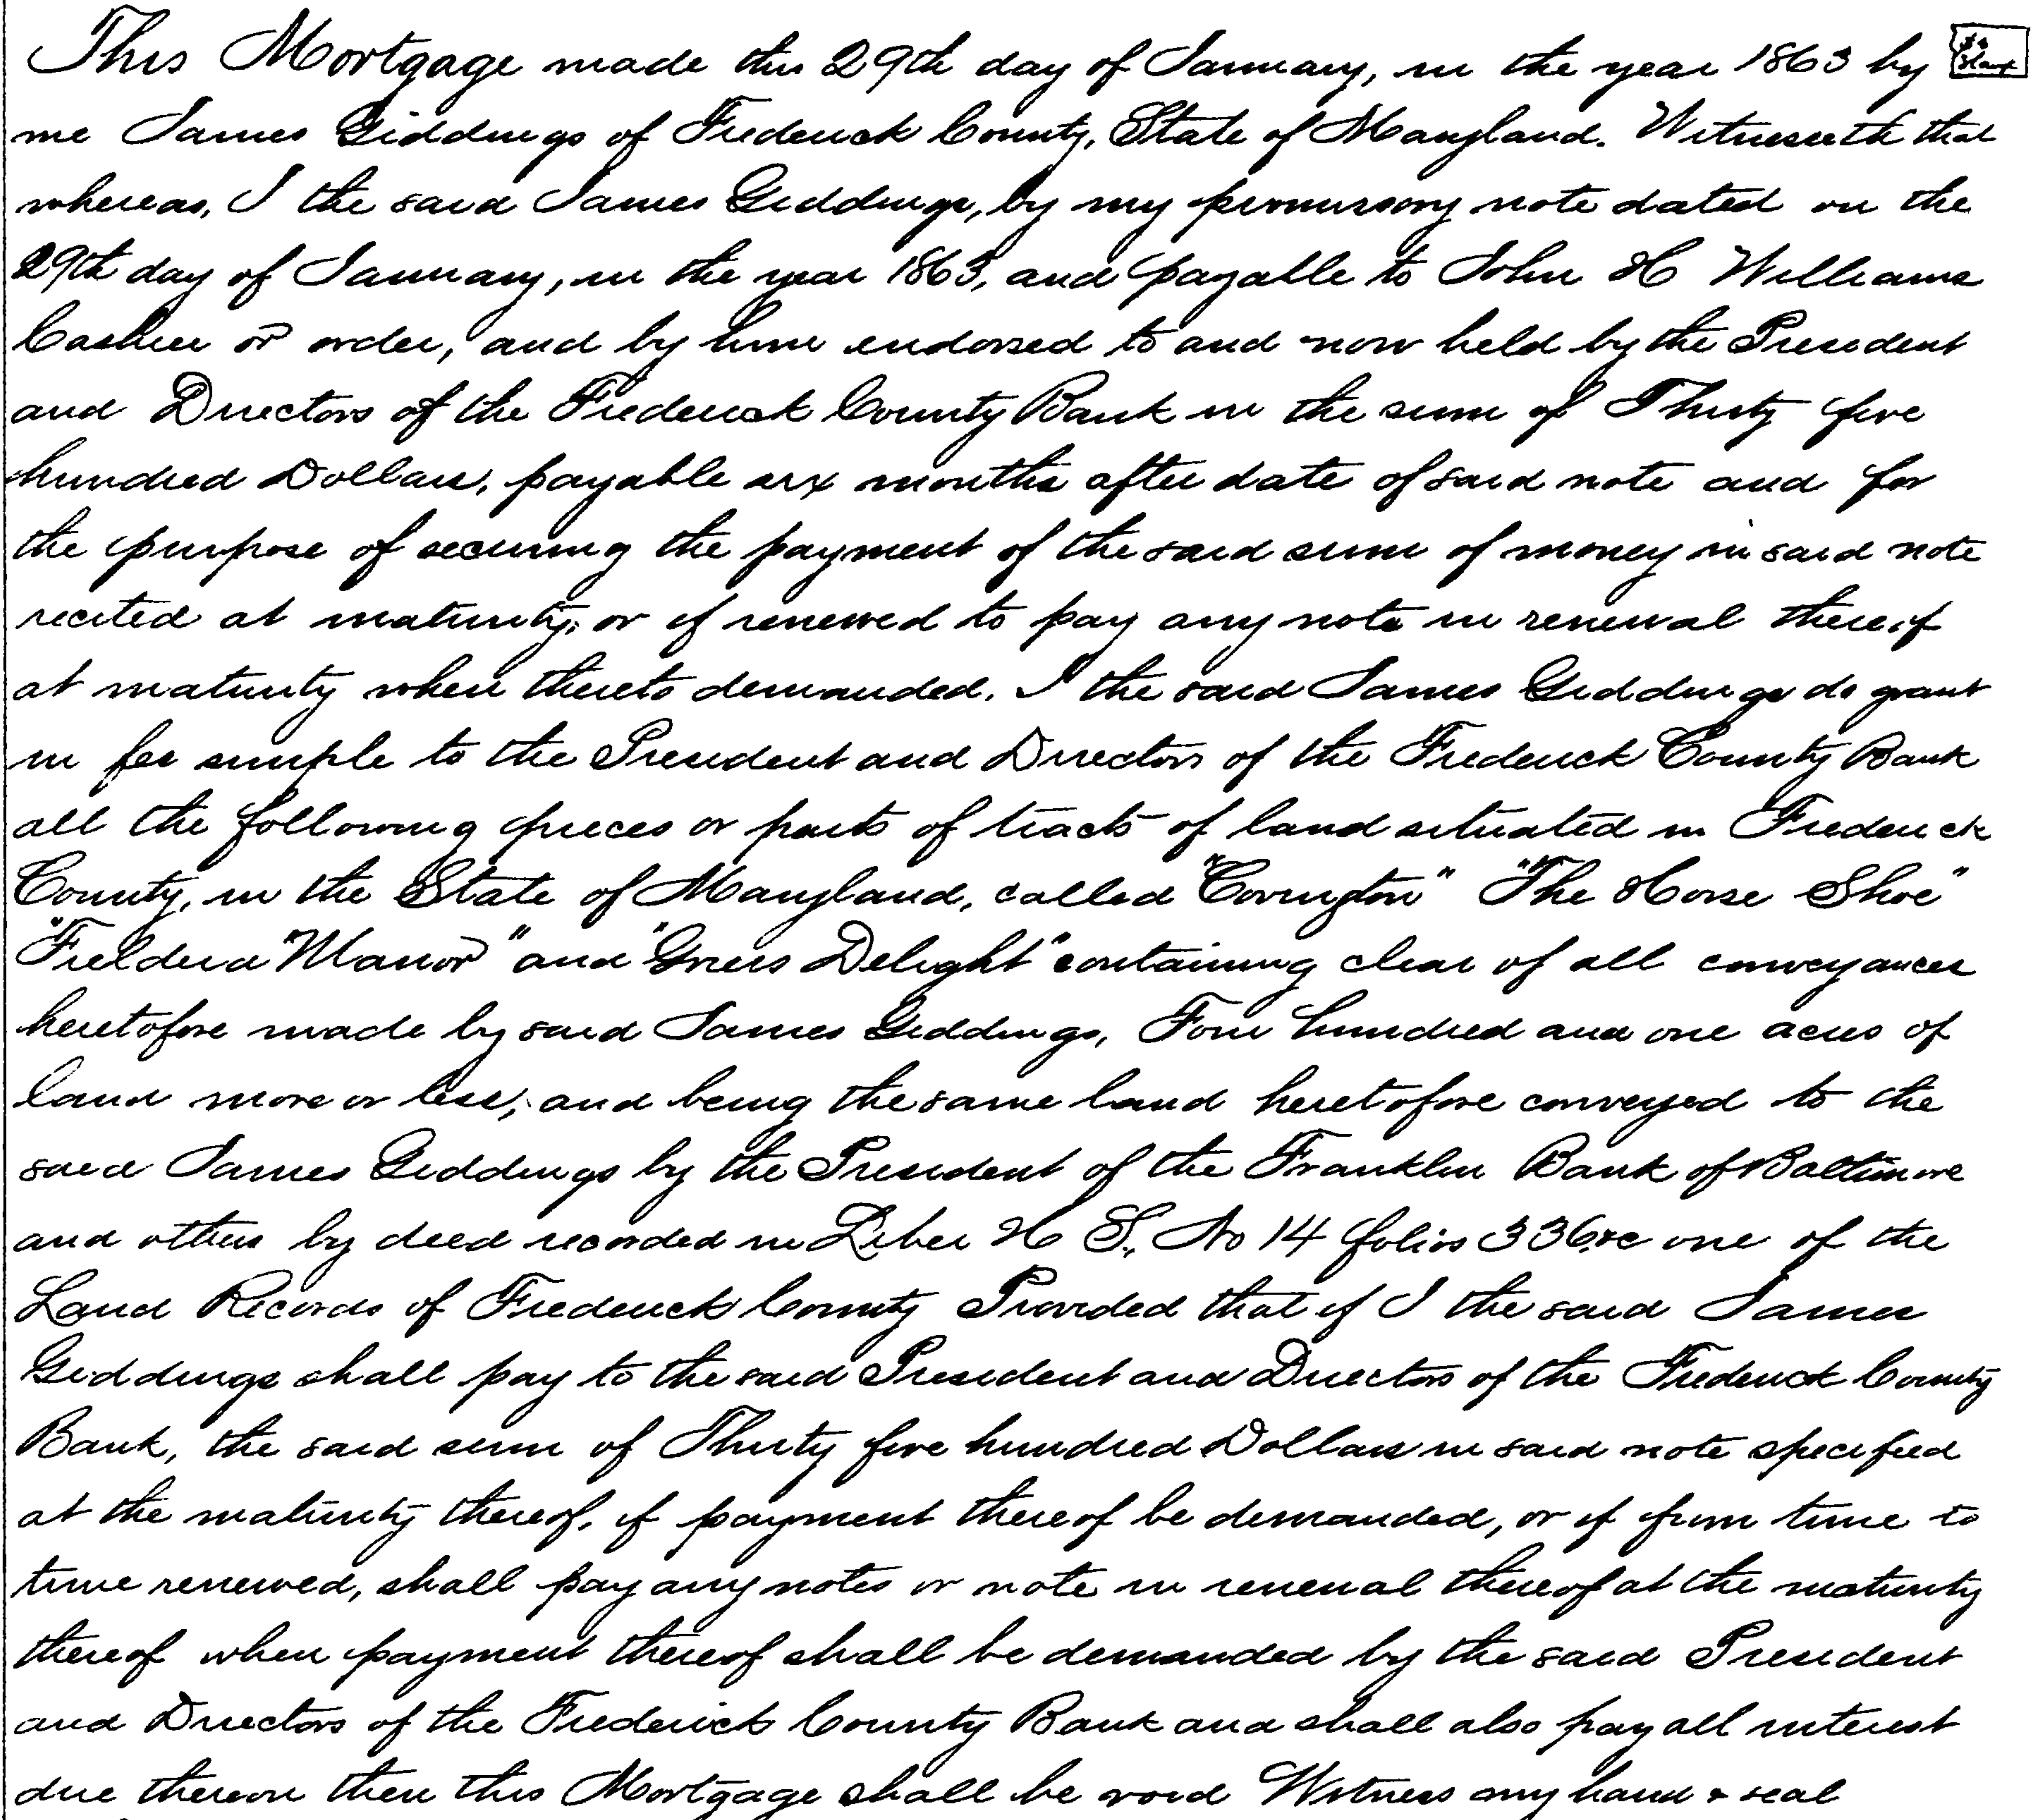 This Mortgage made this 29th day of January, in the year 1863 by
me James Giddings of Frederick County, State of Maryland. Witnesseth that
whereas, I the said James Giddings, by my promissory note dated on the
29th day of January, in the year 1863, and payable to John H Williams
Cashier or order, and by him endorsed to and now held by the President
and Directors of the Frederick County Bank in the sum of Thirty five
hundred Dollars, payable six months after date of said note and for
the purpose of securing the payment of the said sum of money in said note
recited at maturity; or if renewed to pay any note in renewal thereof
at maturity when thereto demanded. I the said James Giddings do grant
in fee simple to the President and Directors of the Frederick County Bank
all the following pieces or parts of tracts of land situated in Frederick
County, in the State of Maryland, called "Covington" "The Horse Shoe"
"Fielderia "Manor" and "Delight" containing clear of all conveyances
heretofore made by said James Giddings, Four hundred and one acres of
land more or less, and being the same land heretofore conveyed to the
said James Giddings by the President of the Franklin Bank of Baltimore
and others by deed recorded in Liber H S, No 14 folios 336,&c one of the
Land Records of Frederick County Provided that if I the said James
Giddings shall pay to the said President and Directors of the Frederick County
Bank, the said sum of Thirty five hundred Dollars in said note specified
at the maturity thereof, if payment thereof be demanded, or if from time to
time renewed, shall pay any notes or note in renewal thereof at the maturity
thereof when payment thereof shall be demanded by the said President
and Directors of the Frederick County Bank and shall also pay all interest
due thereon then this Mortgage shall be void Witness my hand & seal